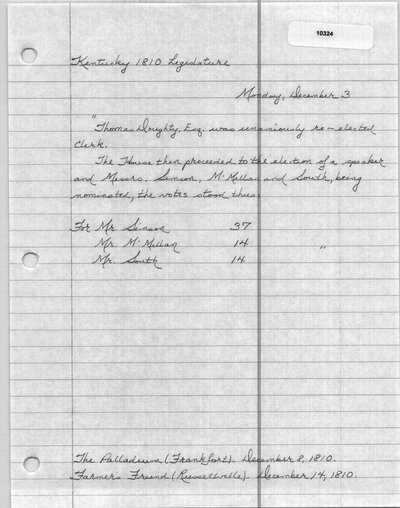 10324
Kentucky 1810 Legislature
Monday, December 3
"Thomas Doughty, Esq. was unaniously re-elected
Clerk.
The House then proceeded to the election of a speaker
and Messrs. Simson, McMillan and South, being
nominated, the votes stood thus:
For Mr. Simson 37
Mr. McMillan 14 "
Mr. South 14
The Palladium (Frankfort). December 8, 1810.
Farmers Friend (Russellville). December 14, 1810.